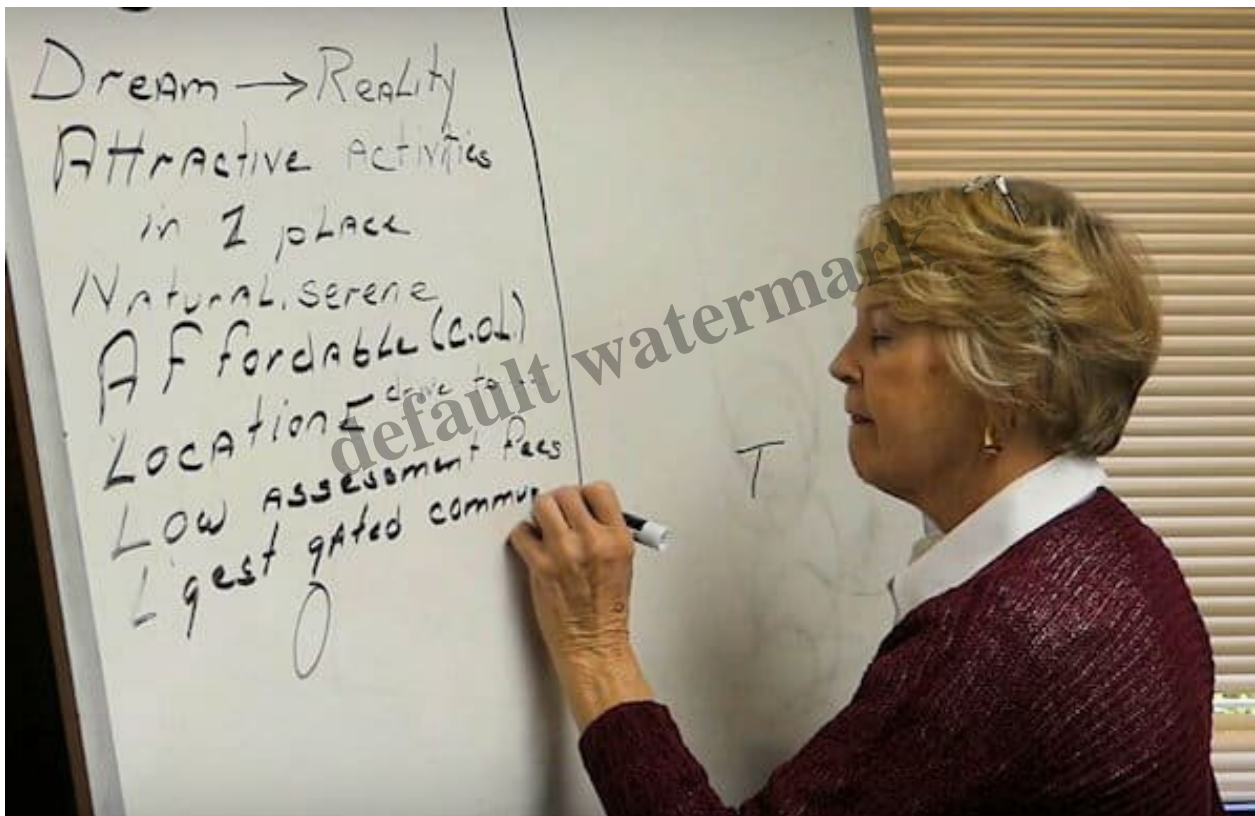 Dream → Reality
Attractive Activities
in 1 place
Natural, serene
Affordable (C.O.L.)
Location drive to --
Low Assessment Fees
Lgest gated commun
T
default watermark